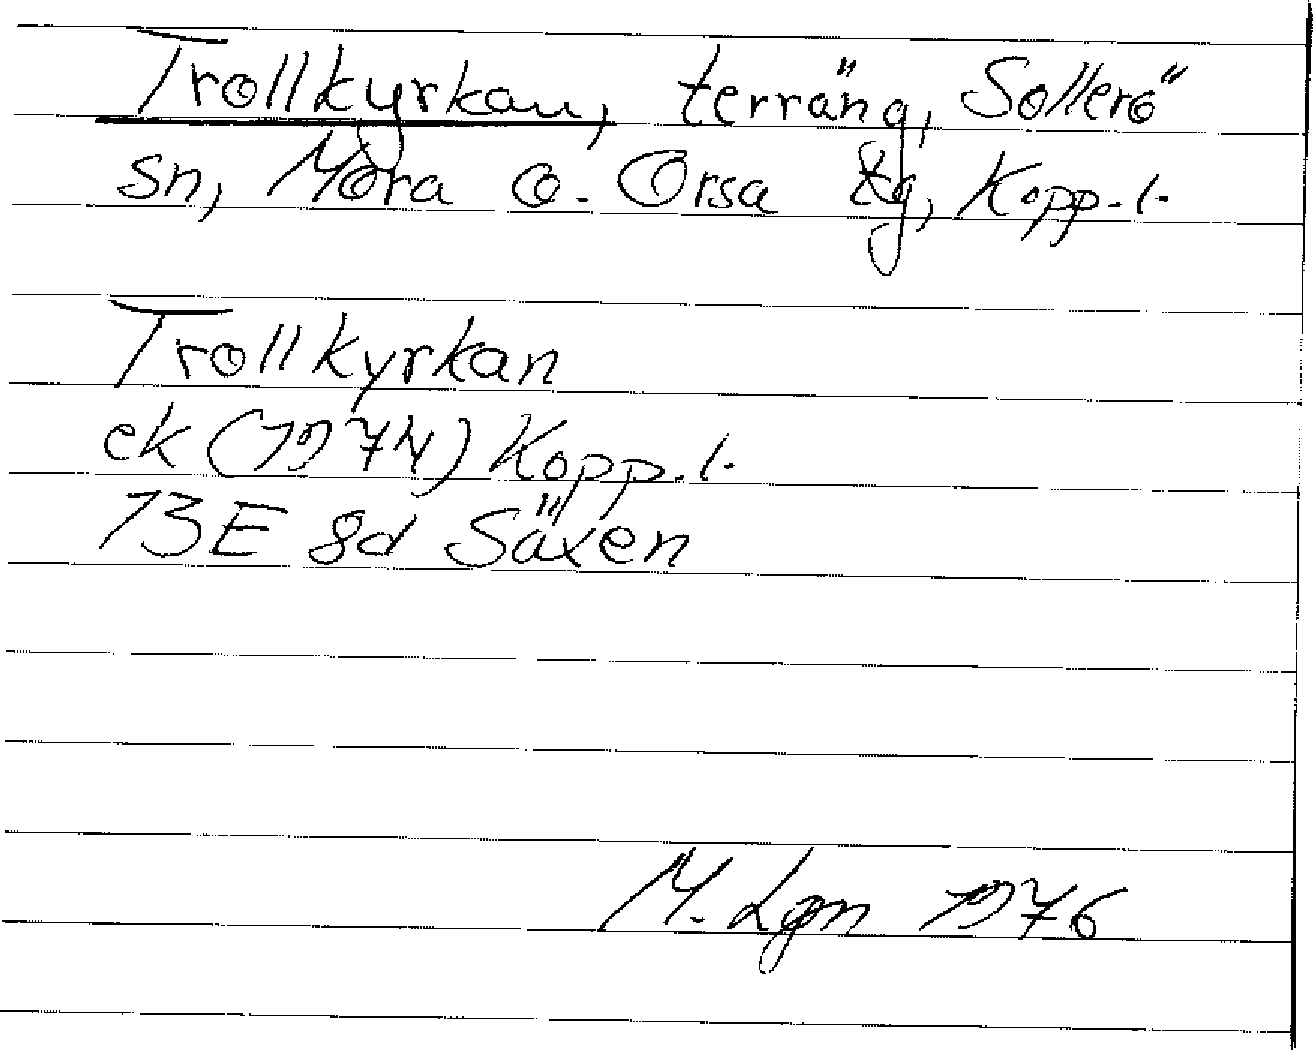 Trollkyrkan, terräng, Sollerö
sn, Mora o. Orsa tg, Kopp. l.
Trollkyrkan
ek (1974) Kopp. l.
13E 8d Säxen
M. Lgn 1976